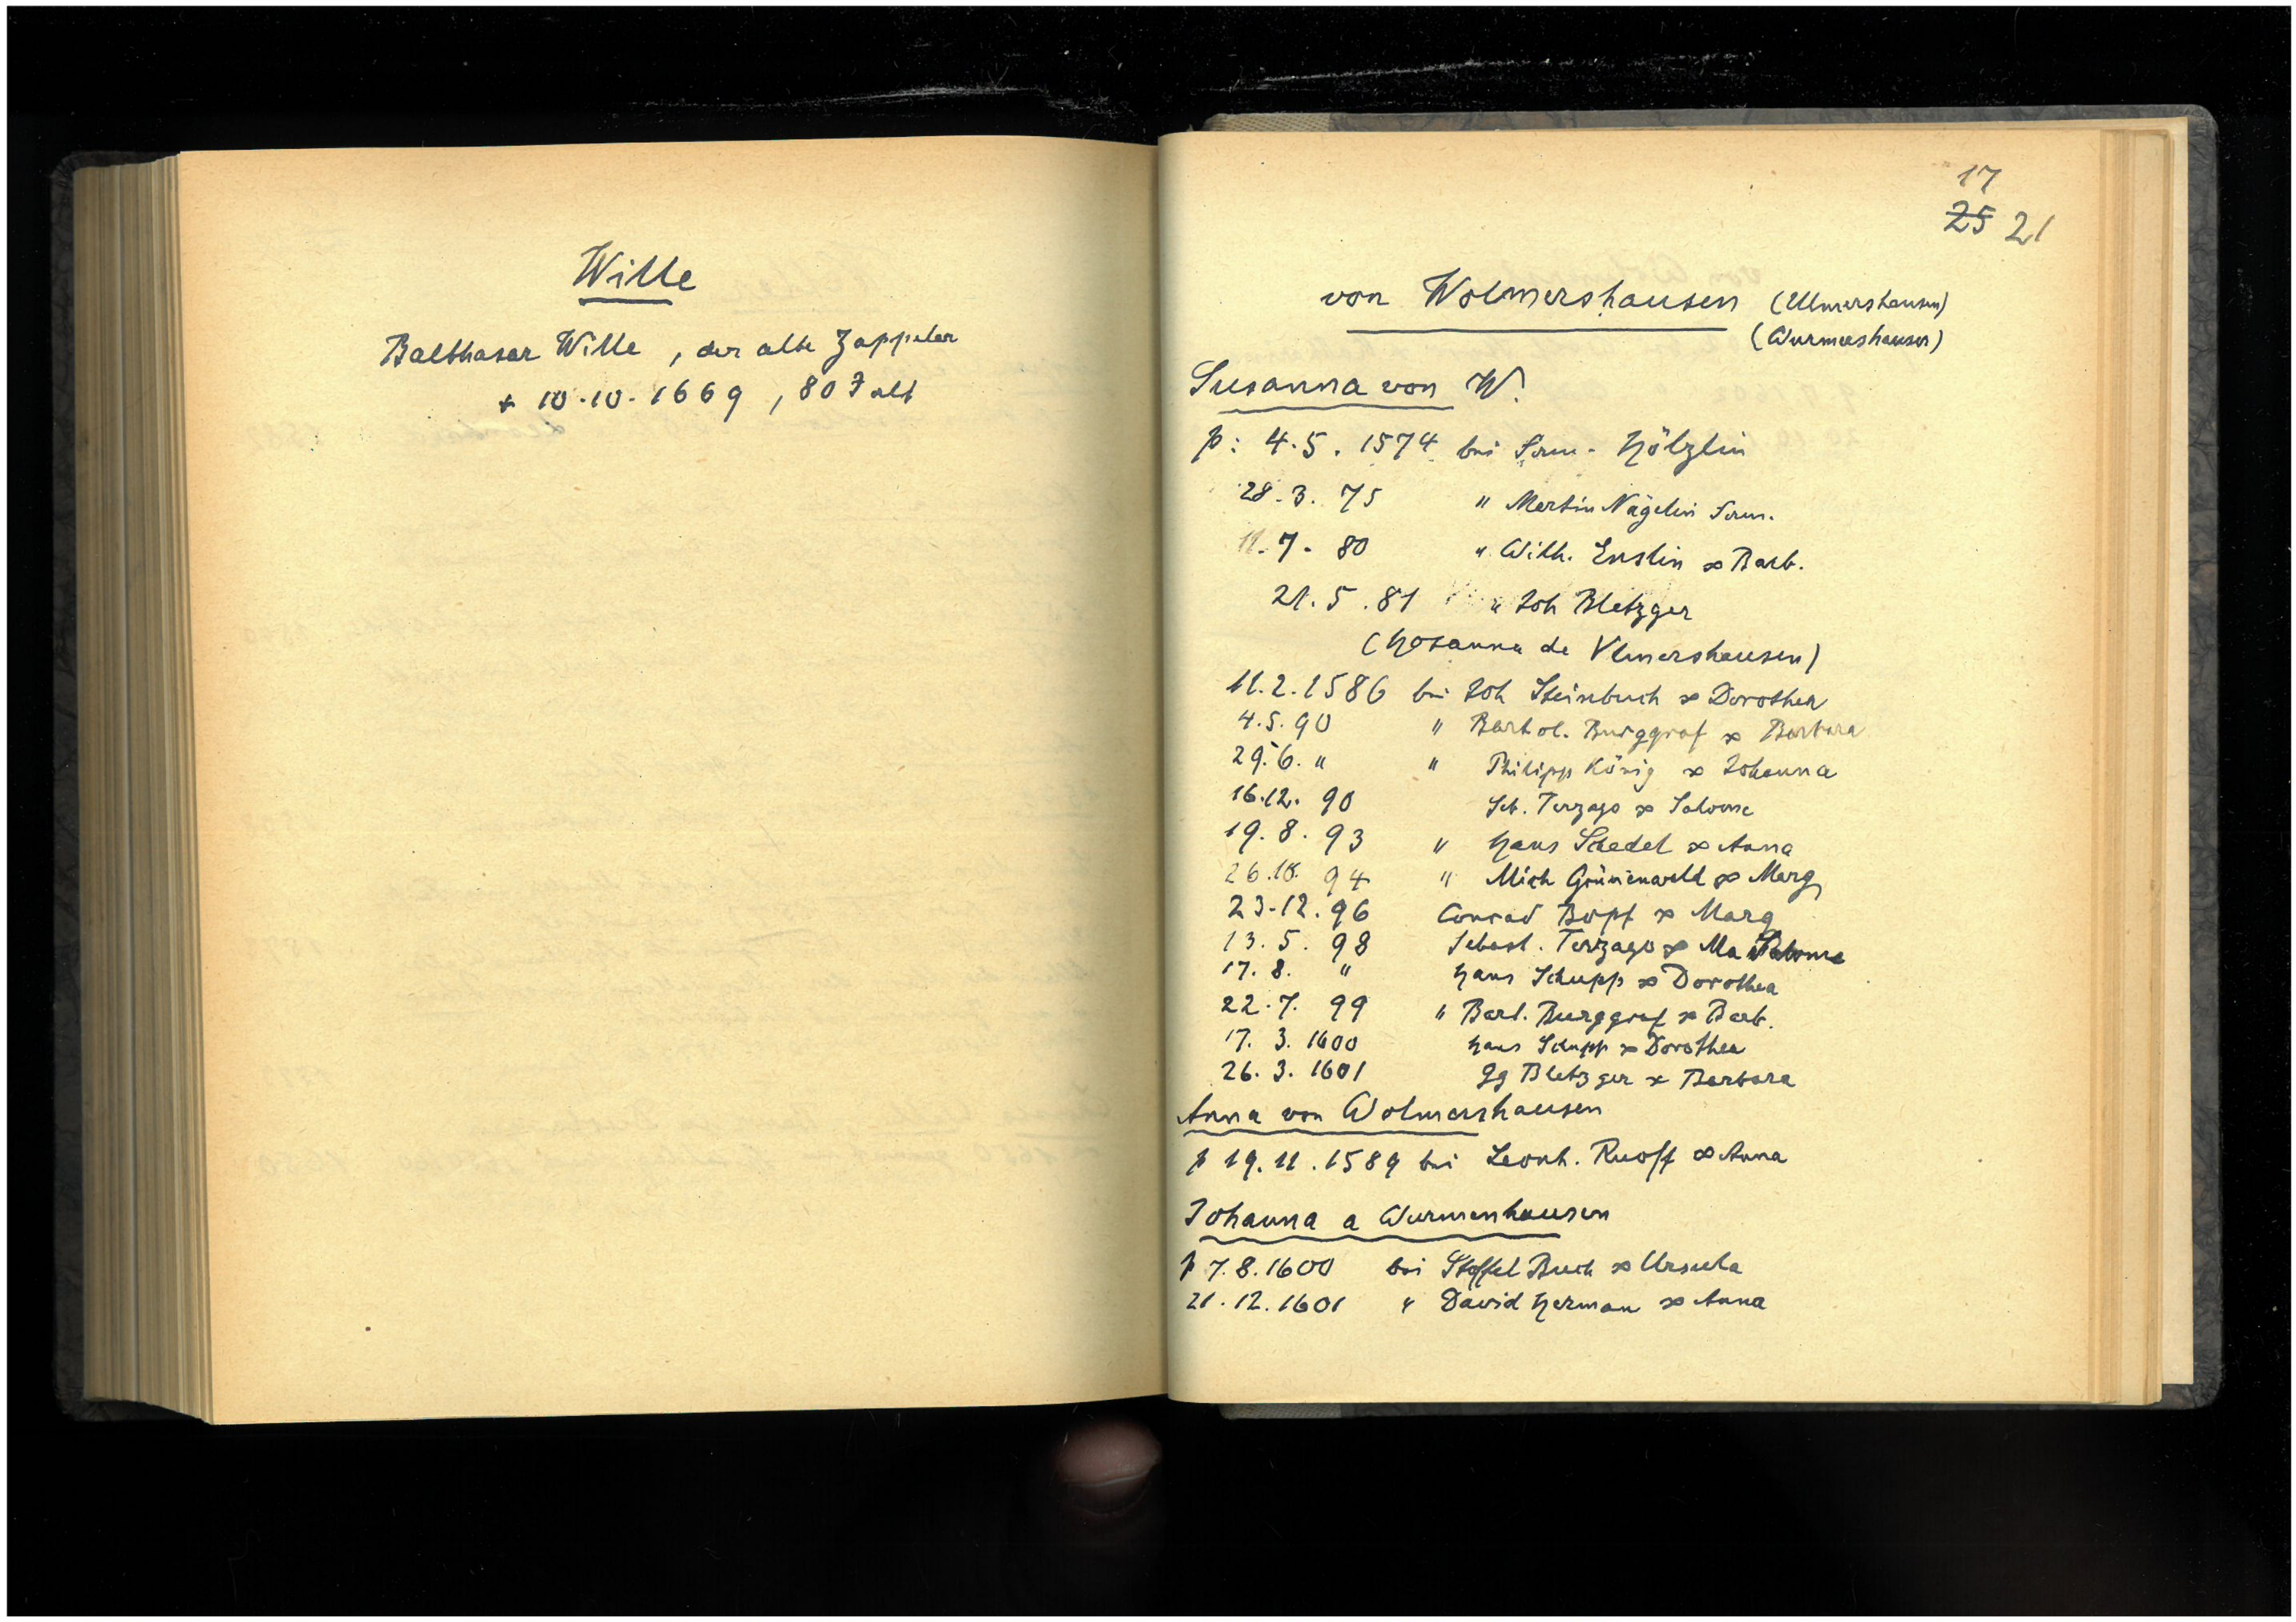 Wille
Balthasar Wille, der alte Zappeler
+ 10.10.1669, 80 J alt
17
25 21
von Wolmershausen (Ulmershausen)
(Wurmershausen)
Susanna von W.
p: 4.5.1574 bei Hölzlin
28.3.75 " Martin Nägelin
11.7.80 " Wilh. Enslin ∞ Barb.
21.5.81 " Joh Bletzger
(Hosanna de Vlmershausen)
11.2.1586 bei Joh Steinbuch ∞ Dorothea
4.5.90 " Barthol. Burggraf ∞ Barbara
29.6. " " Philipp König ∞ Johanna
16.12.90 Seb. Terzago ∞ Salome
19.8.93 " Hans Schedel ∞ Anna
26.10.94 " Mich Grünenwald ∞ Marg
23.12.96 Conrad Bopf ∞ Marg
13.5.98 Sebast. Terzago ∞ Ma Salome
17.8. " Hans Schupp ∞ Dorothea
22.7.99 " Bart. Burggraf ∞ Barb.
17.3.1600 Hans Schupp ∞ Dorothea
26.3.1601 Gg Bletzger ∞ Barbara
Anna von Wolmershausen
p 19.11.1589 bei Leonh. Ruoff ∞ Anna
Johanna a Wurmenhausen
p 7.8.1600 bei Stoffel Buch ∞ Ursula
21.12.1601 " David Herman ∞ Anna